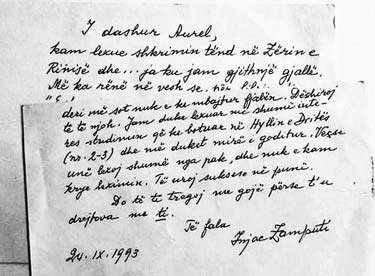 I dashur Aurel,
kam lexue shkrimin tënd në Zërin e
Rinisë dhe... ja ku jam gjithnjë gjallë.
Më ka rënë në vesh se
deri më sot nuk e ke mbajtur fjalën. Dëshiroj
të të njoh. Jam duke lexuar me shumë inte-
res studimin që ke botuar në Hyllin e Dritës
(nr. 2-3) dhe më duket mirë e goditur. Veçse
unë lexoj shumë nga pak, dhe nuk e kam
krye leximin. Të uroj suksese në punë.
Do të të tregoj me gojë përse t'u
drejtova me ti.
Të fala
Injac Zamputi
20.IX.1993